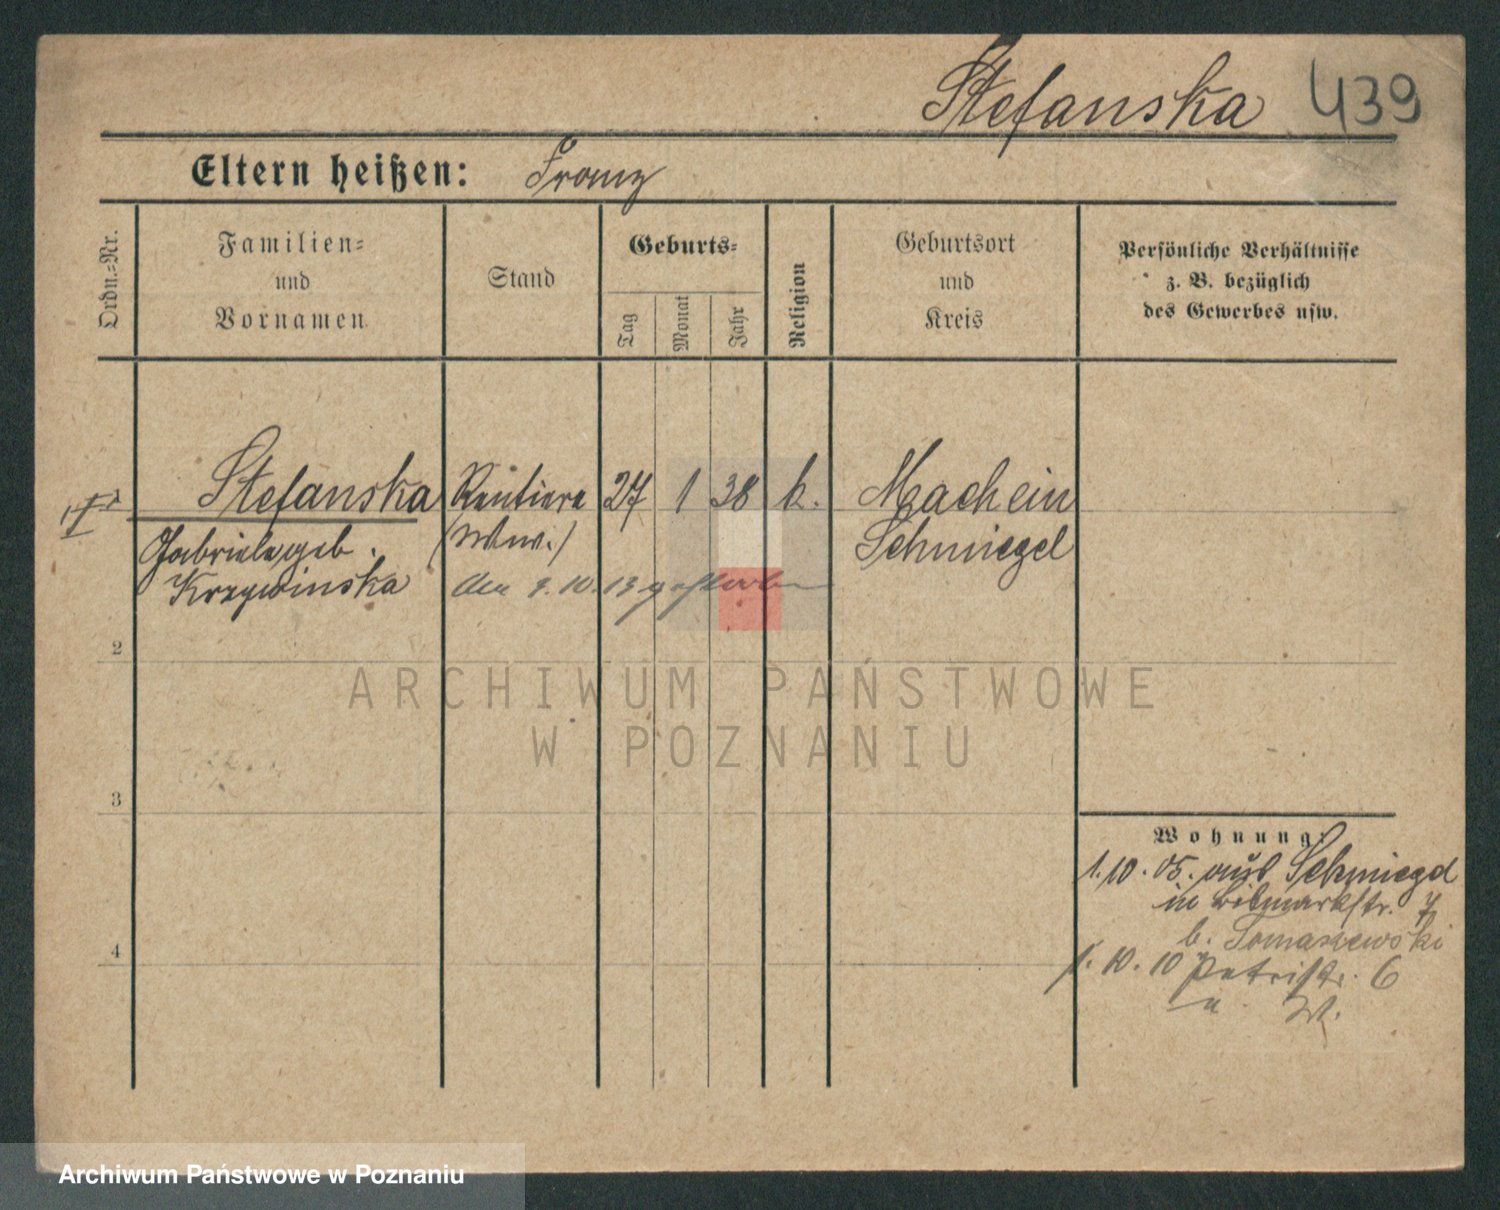 Stefanska 439
Eltern heißen: Franz
Ordn.-Nr.
Familien-
und
Vornamen
Stand
Geburts-
Tag
Monat
Jahr
Religion
Geburtsort
und
Kreis
Persönliche Verhältnisse
z. B. bezüglich
des Gewerbes usw.
Stefanska Rentiere 27 1 38 k. Machcin
Gabriela geb. (Wwe.) Schmiegel
Krzywinska den 9. 10. 13 gestorben
2
3
4
Wohnung:
1.10.05. aus Schmiegel
in Bismarkstr. 7
b. Tomaszewski
1.10.10 Petristr. 6
W.
ARCHIWUM PAŃSTWOWE
W POZNANIU
Archiwum Państwowe w Poznaniu